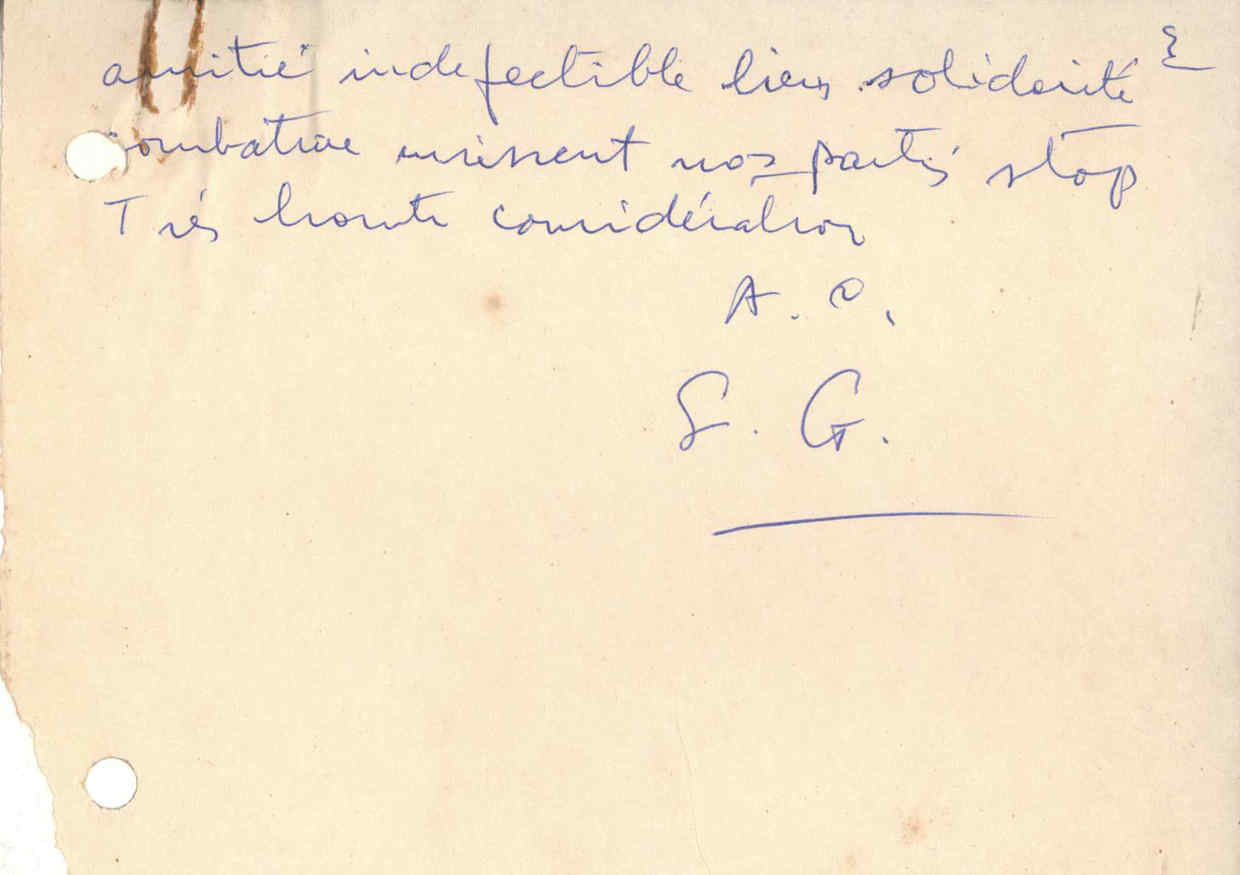 amitié indefectible liens solidarité &
combative unissent nos partis stop
Très haute considération
A. C.
S. G.